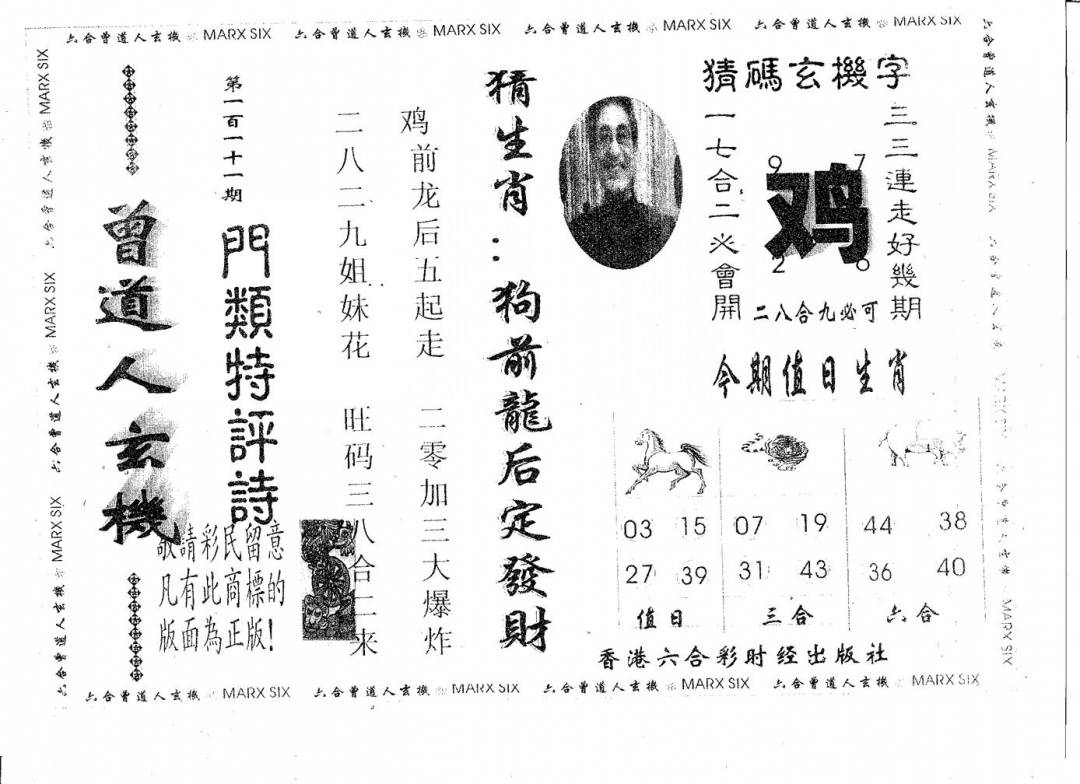 六合曾道人玄機 MARX SIX 六合曾道人玄機 MARX SIX 六合曾道人玄機 MARX SIX 六合曾道人玄機 MARX SIX
猜碼玄機字
三三連走好幾期
9 7
鸡
2 0
一七合二必會開
二八合九必可
今期值日生肖
03 15 07 19 44 38
27 39 31 43 36 40
值日 三合 六合
香港六合彩时经出版社
猜生肖：狗前龍后定發財
鸡前龙后五起走 二零加三大爆炸
二八二九姐妹花 旺码三八合二来
第一百一十一期
門類特評詩
曾道人玄機
敬請彩民留意
凡有此商標的
版面為正版！
六合曾道人玄機 MARX SIX 六合曾道人玄機 MARX SIX 六合曾道人玄機 MARX SIX
六合曾道人玄機 MARX SIX 六合曾道人玄機 MARX SIX 六合曾道人玄機 MARX SIX 六合曾道人玄機 MARX SIX